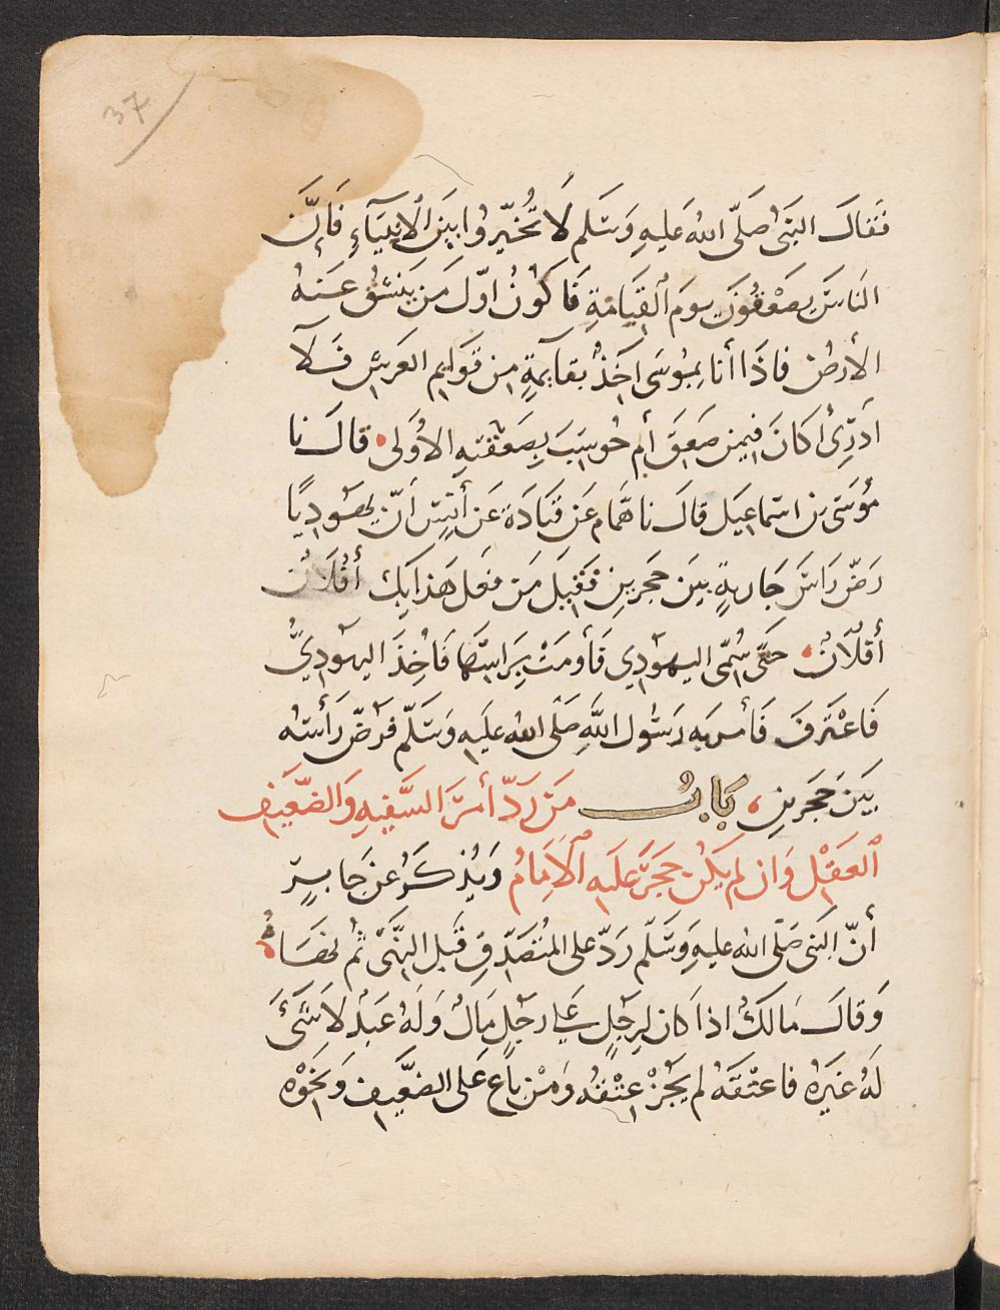 37
فَقَالَ النَّبِيُّ صَلَّى اللهُ عَلَيهِ وَسَلَّم لَا تُخَيِّرُوا بَيَن الْأنبِيَآءِ فَإِنَّ
النَاسَ يَصعَقُونَ يومَ القِيَامَةِ فَاكُونُ اوّل مَن يَنشقُّ عَنهُ
الأرضُ فاذَا أنا بِمُوسَى آخذٌ بقآيمةٍ من قوَايم العَرشِ فَلآ
اَدرِي أكانَ فيمن صَعِقَ أم حُوسِبَ بِصَعْقتهِ الاُولى قالَ نا
مُوسَى بن اسماعيَل قالَ نا همَّام عَن قتَادَة عَن أنَسٍ أنّ يَهُودِيًّا
رَضّ رَاسَ جَاريةٍ بيَن حَجرينِ فقيلَ مَن فعَل هَذا بِكِ أفُلَانٌ
أفُلَانٌ حتَّى سُمّى اليهوُدِي فَأومَتْ بِرَاسهَا فَاُخِذَ اليهوديُّ
فَاعْترَفَ فَأمر بِه رَسُول اللَّهِ صَلَى اللهُ عليَهِ وَسَلّم فرُضّ رَأسُه
بَيَن حَجَرينِ بَابُ مَن رَدّ أمرَ السَّفيهِ وَالضَّعيَفِ
العَقِل وَان لم يَكُن حَجَرَ عَليَهِ الْاِمَامُ وَيُذكرُ عن جَابرٍ
أنّ النَبي صَلّى الله عليهِ وَسَلّم رَدّ على المُتَصَدِّقِ قَبل النَّهْي ثُم نهَاهُ
وَقالَ مَالكٌ اذا كان لِرجُلٍ عَلى رجُلٍ مَالٌ وَلَهُ عَبدٌ لا شَيْءَ
لَهُ غيَرهُ فاعتَقهُ لم يَجُزْ عِتْقهُ وَمَن باع عَلى الضعَّيف وَنحَوْه